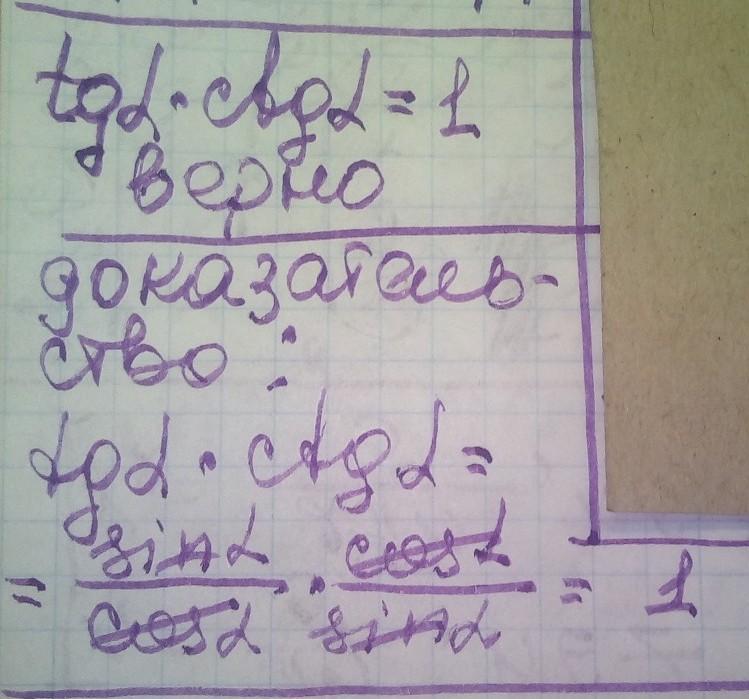 tgα · ctgα = 1
верно
доказатель-
ство :
tgα · ctgα =
= sinα/cosα · cosα/sinα = 1